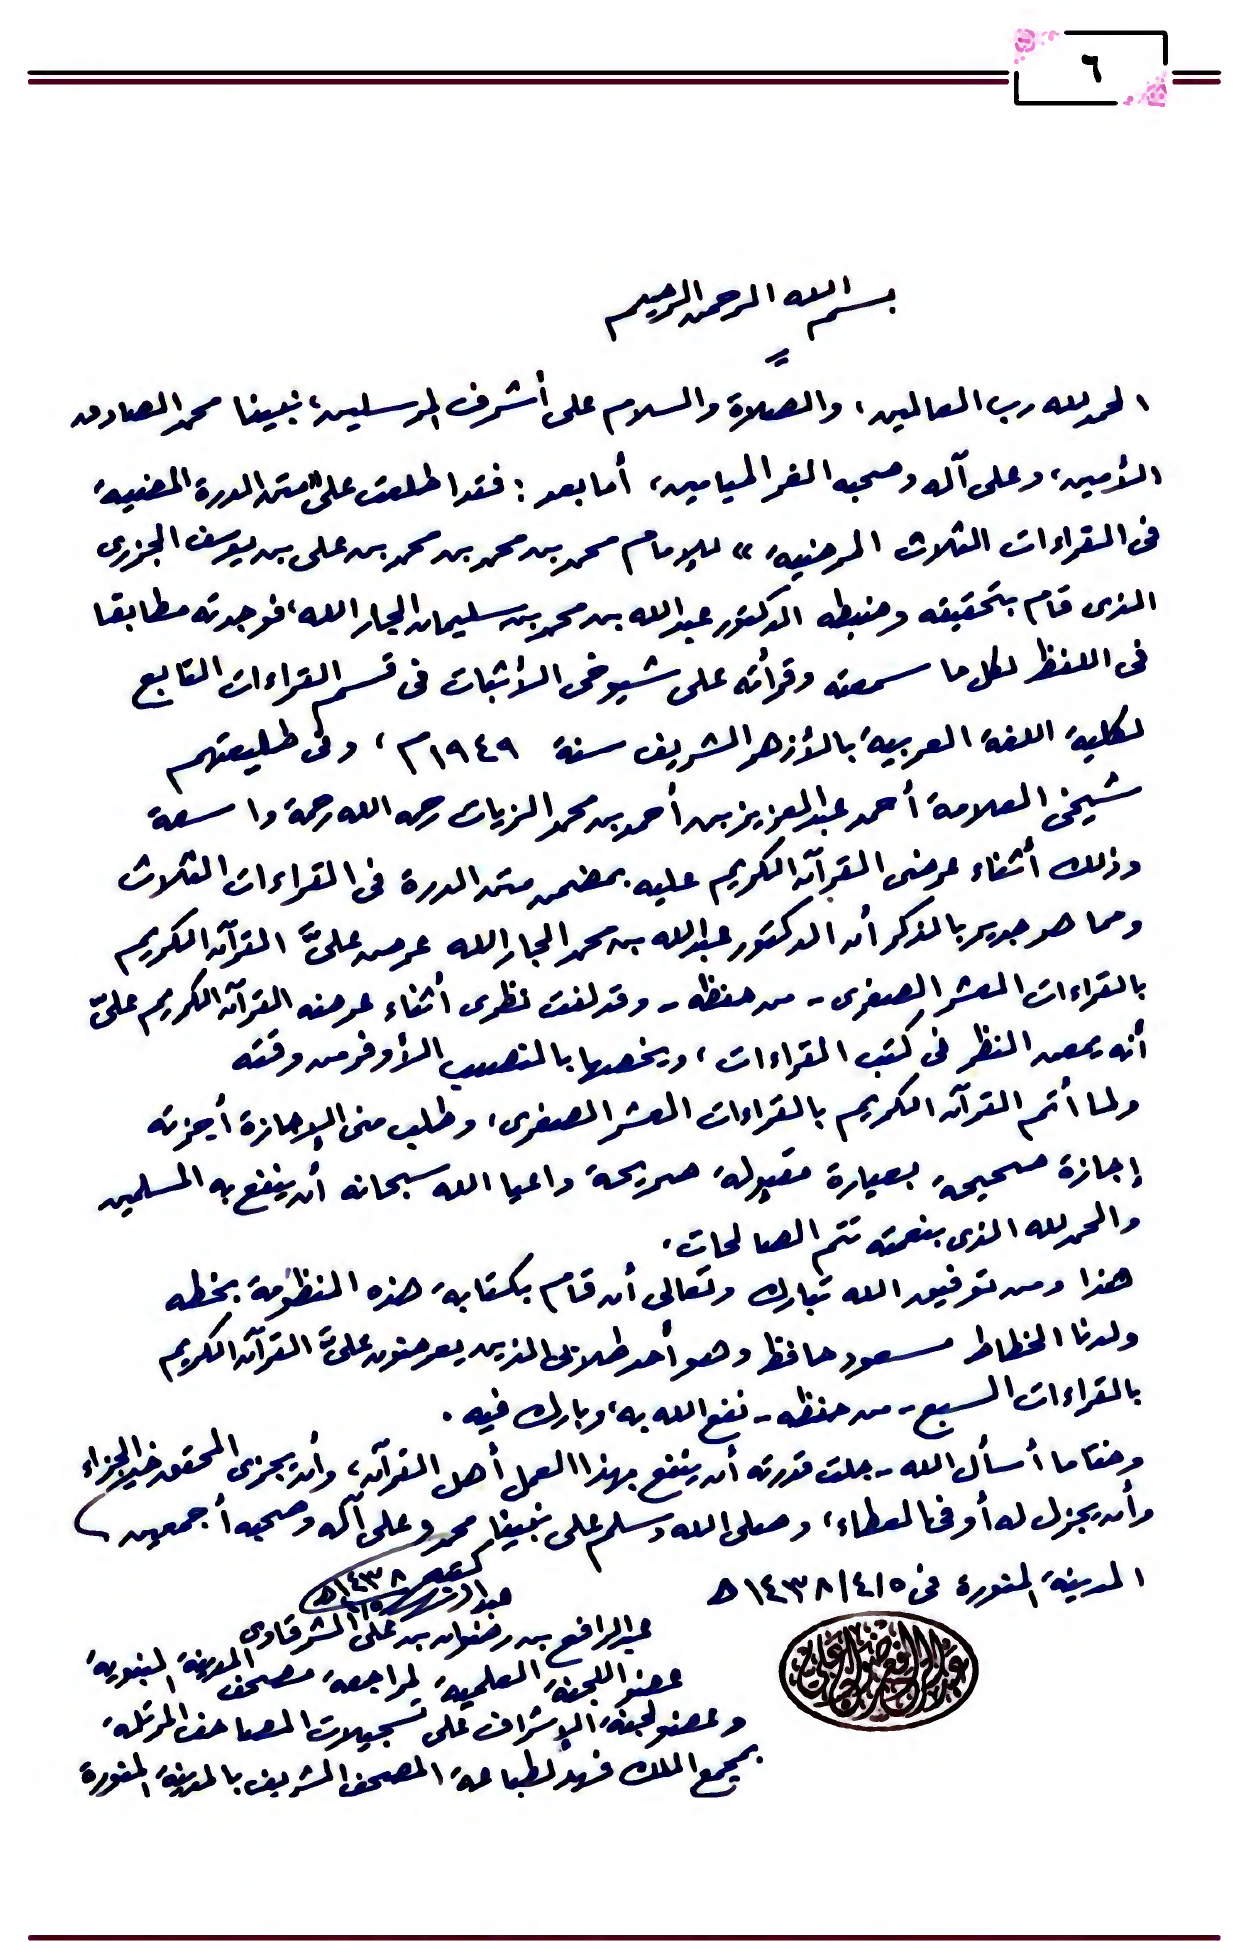 ٦
بسم الله الرحمن الرحيم
الحمد لله رب العالمين، والصلاة والسلام على أشرف المرسلين، نبينا محمد الصادق
الأمين، وعلى آله وصحبه الغر الميامين، أما بعد: فقد اطلعت على «متن الدرة المضية
في القراءات الثلاث المرضية» للإمام محمد بن محمد بن محمد بن على بن يوسف الجزرى
الذى قام بتحقيقه وضبطه الدكتور عبد الله بن محمد بن سليمان الجار الله، فوجدته مطابقا
فى اللفظ لكل ما سمعته وقرأته على شيوخى الأثبات فى قسم القراءات التابع
لكلية اللغة العربية بالأزهر الشريف سنة ١٩٤٩م، وفى طليعتهم
شيخى العلامة أحمد عبد العزيز بن أحمد بن محمد الزيات رحمه الله رحمة واسعة
وذلك أثناء عرضى القرآن الكريم عليه بمضمن متن الدرة فى القراءات الثلاث
ومما هو جدير بالذكر أن الدكتور عبد الله بن محمد الجار الله عرض علىَّ القرآن الكريم
بالقراءات العشر الصغرى - من حفظه - وقد لفت نظرى أثناء عرضه القرآن الكريم علىّ
أنه يمعن النظر فى كتب القراءات، ويخصها بالنصيب الأوفر من وقته
ولما أتم القرآن الكريم بالقراءات العشر الصغرى، وطلب منى الإجازة أجزته
إجازة صحيحة بعبارة مقبولة صريحة داعيا الله سبحانه أن ينفع به المسلمين
والحمد لله الذى بنعمته تتم الصالحات.
هذا ومن توفيق الله تبارك وتعالى أن قام بكتابة هذه المنظومة بخطه
ولدنا الخطاط مسعود حافظ وهو أحد طلابى الذين يعرضون علىَّ القرآن الكريم
بالقراءات السبع - من حفظه - نفع الله به، وبارك فيه.
وختاما أسأل الله - جلت قدرته أن ينفع بهذا العمل أهل القرآن، وأن يجزى المحقق خير الجزاء
وأن يجزل له أوفى العطاء، وصلى الله وسلم على نبينا محمد وعلى آله وصحبه أجمعين
المدينة المنورة فى ١٤٣٨/٤/٥هـ
كتبه
عبد الرافع بن رضوان بن على الشرقاوى
عضو اللجنة العلمية لمراجعة مصحف المدينة النبوية
وعضو لجنة الإشراف على تسجيلات المصاحف المرتلة
بمجمع الملك فهد لطباعة المصحف الشريف بالمدينة المنورة